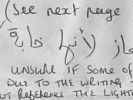 (See next page
لأنها جابة
UNSURE IF SOME OF
DUE TO THE WRITING
REFERENCE THE LIGHT